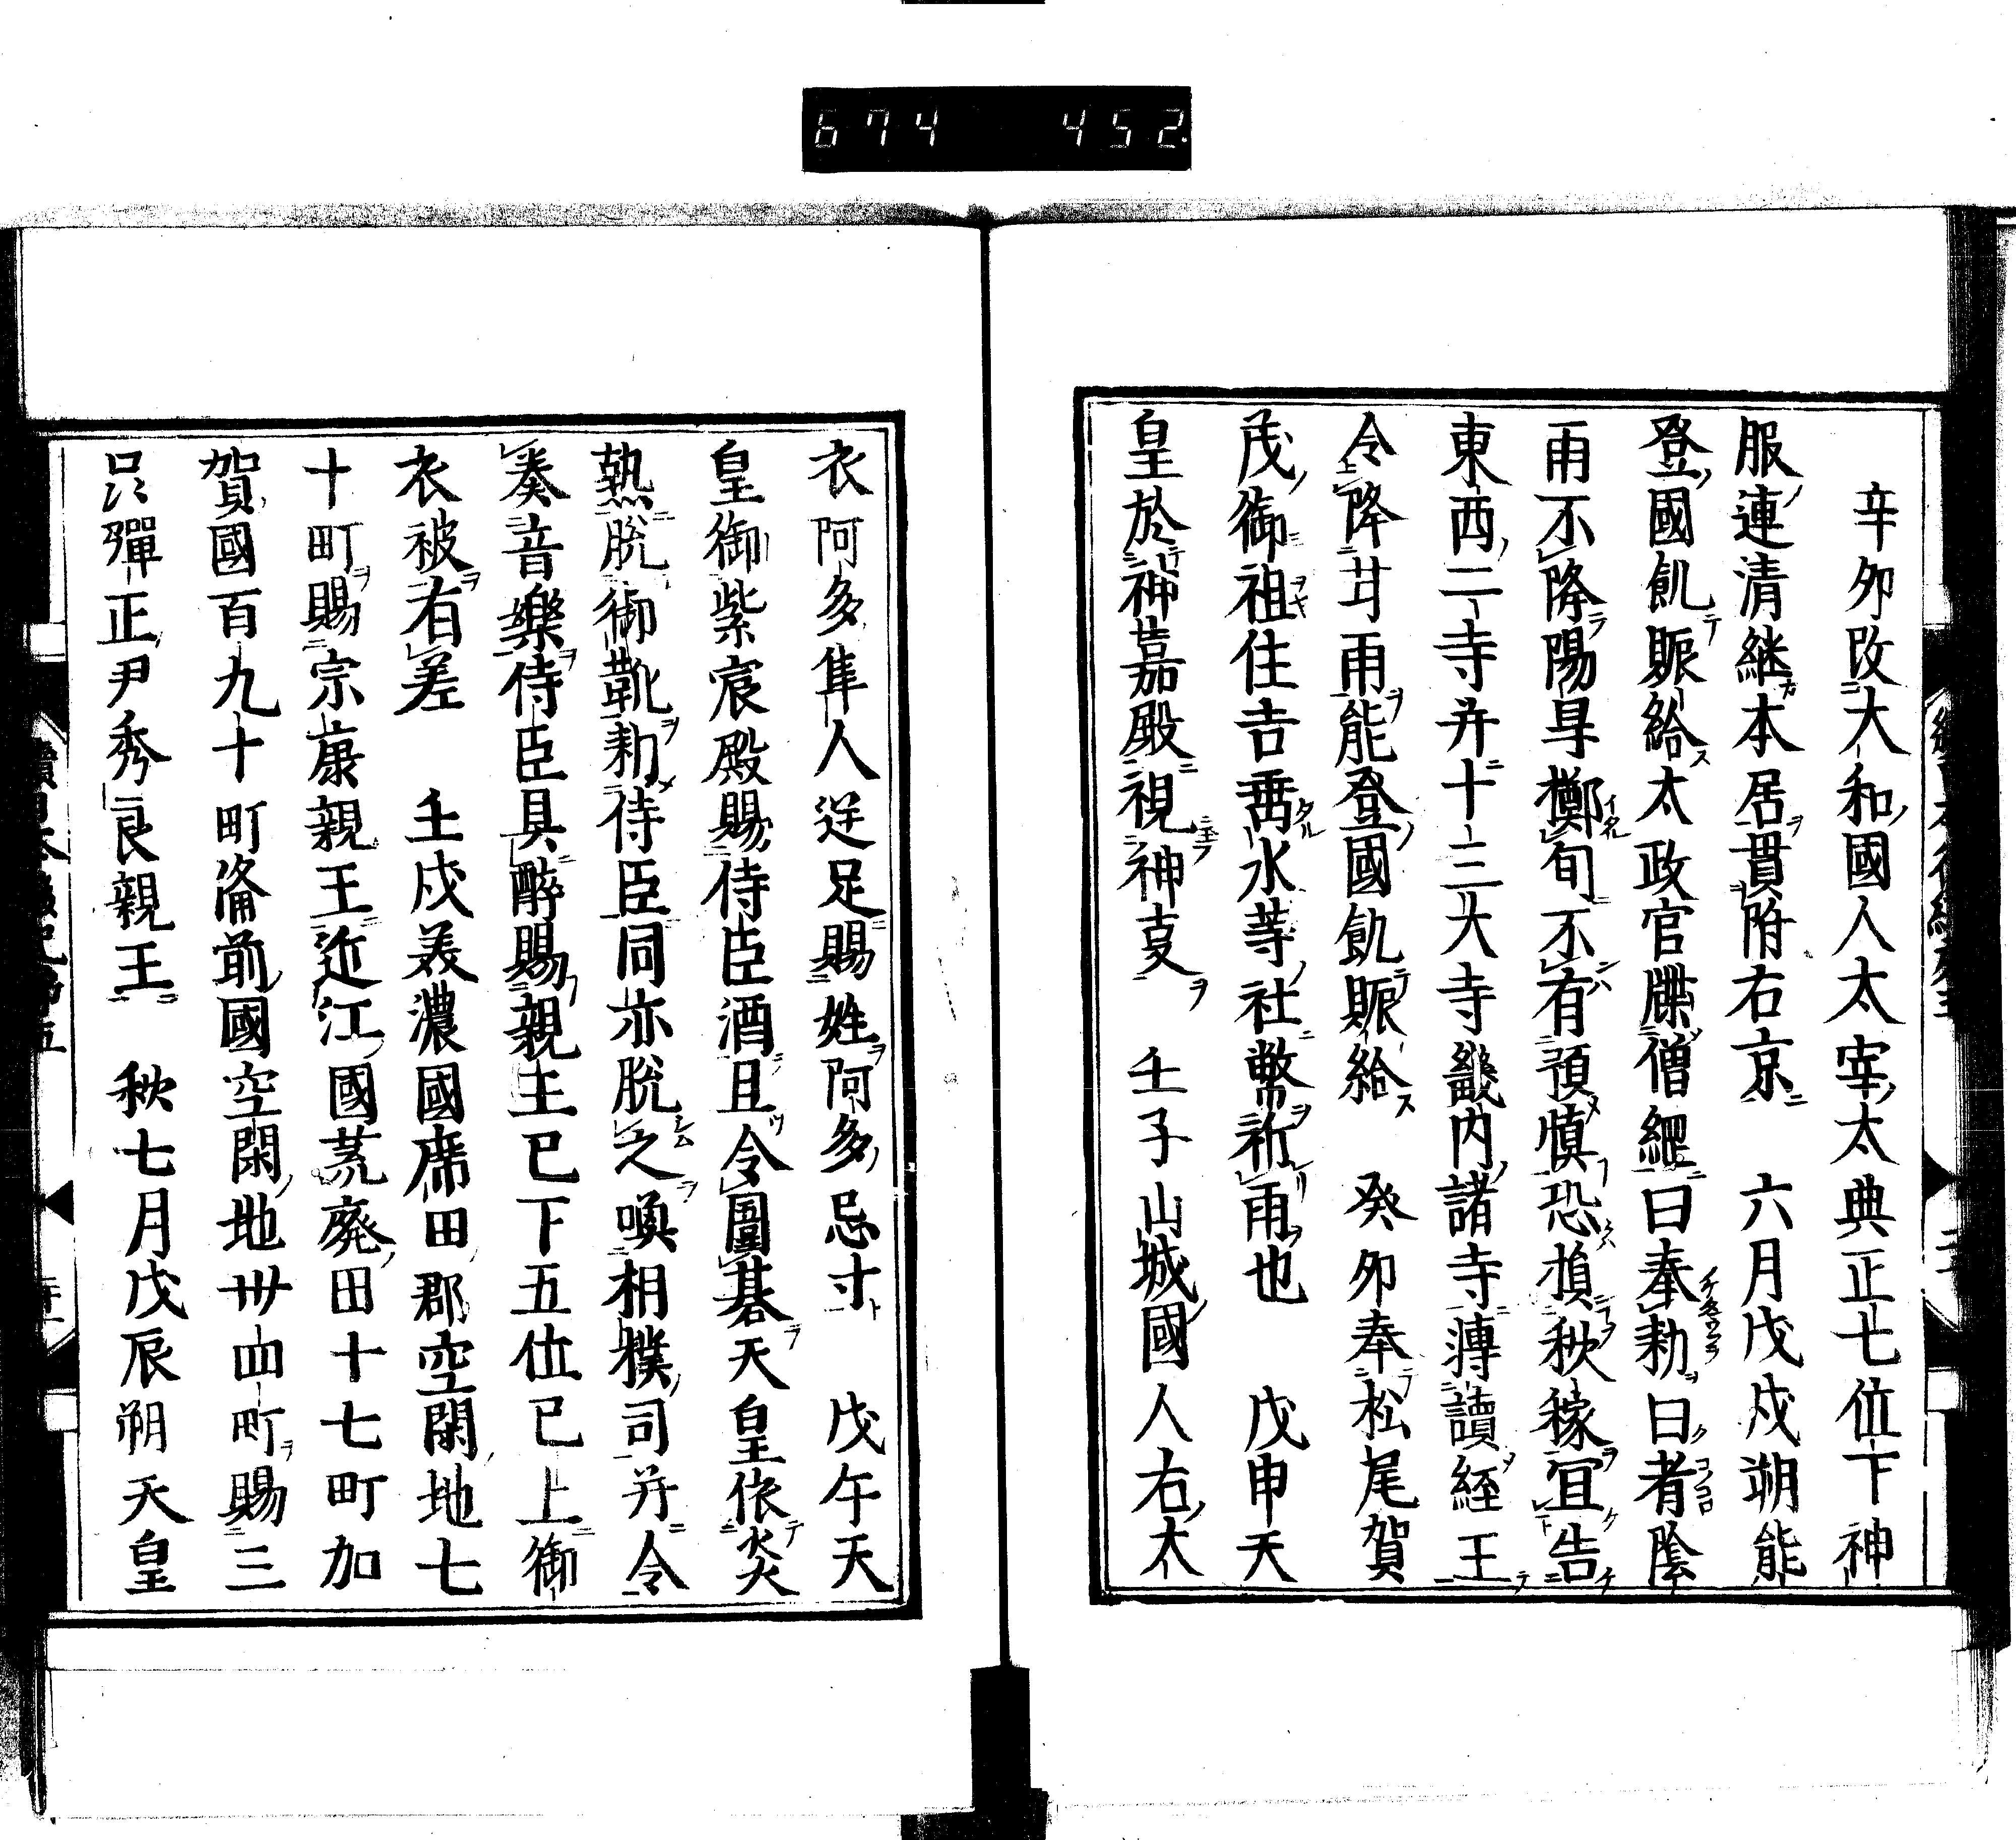 674 452
辛夘改大和國人太宰太典正七位下神
服連清継本居貫附右京 六月戊戌朔能
登國飢賑給太政官牒僧綱曰奉勅曰者陰
雨不降陽旱擲旬不有預慎恐損秋稼宜告
東西二寺并十三大寺畿内諸寺轉讀經王
令降甘雨能登國飢賑給 癸夘奉松尾賀
茂御祖住吉垂水等社幣祈雨也 戊申天
皇於神嘉殿視神事 壬子山城國人右大
衣阿多隼人逆足賜姓阿多忌寸 戊午天
皇御紫宸殿賜侍臣酒且令圍碁天皇依炎
熱脱御靴勅侍臣同亦脱之喚相撲司并令
奏音樂侍臣具醉賜親王已下五位已上御
衣被有差 壬戌美濃國席田郡空閑地七
十町賜宗康親王近江國荒廢田十七町加
賀國百九十町備前國空閑地卌四町賜三
品彈正尹秀良親王 秋七月戊辰朔天皇